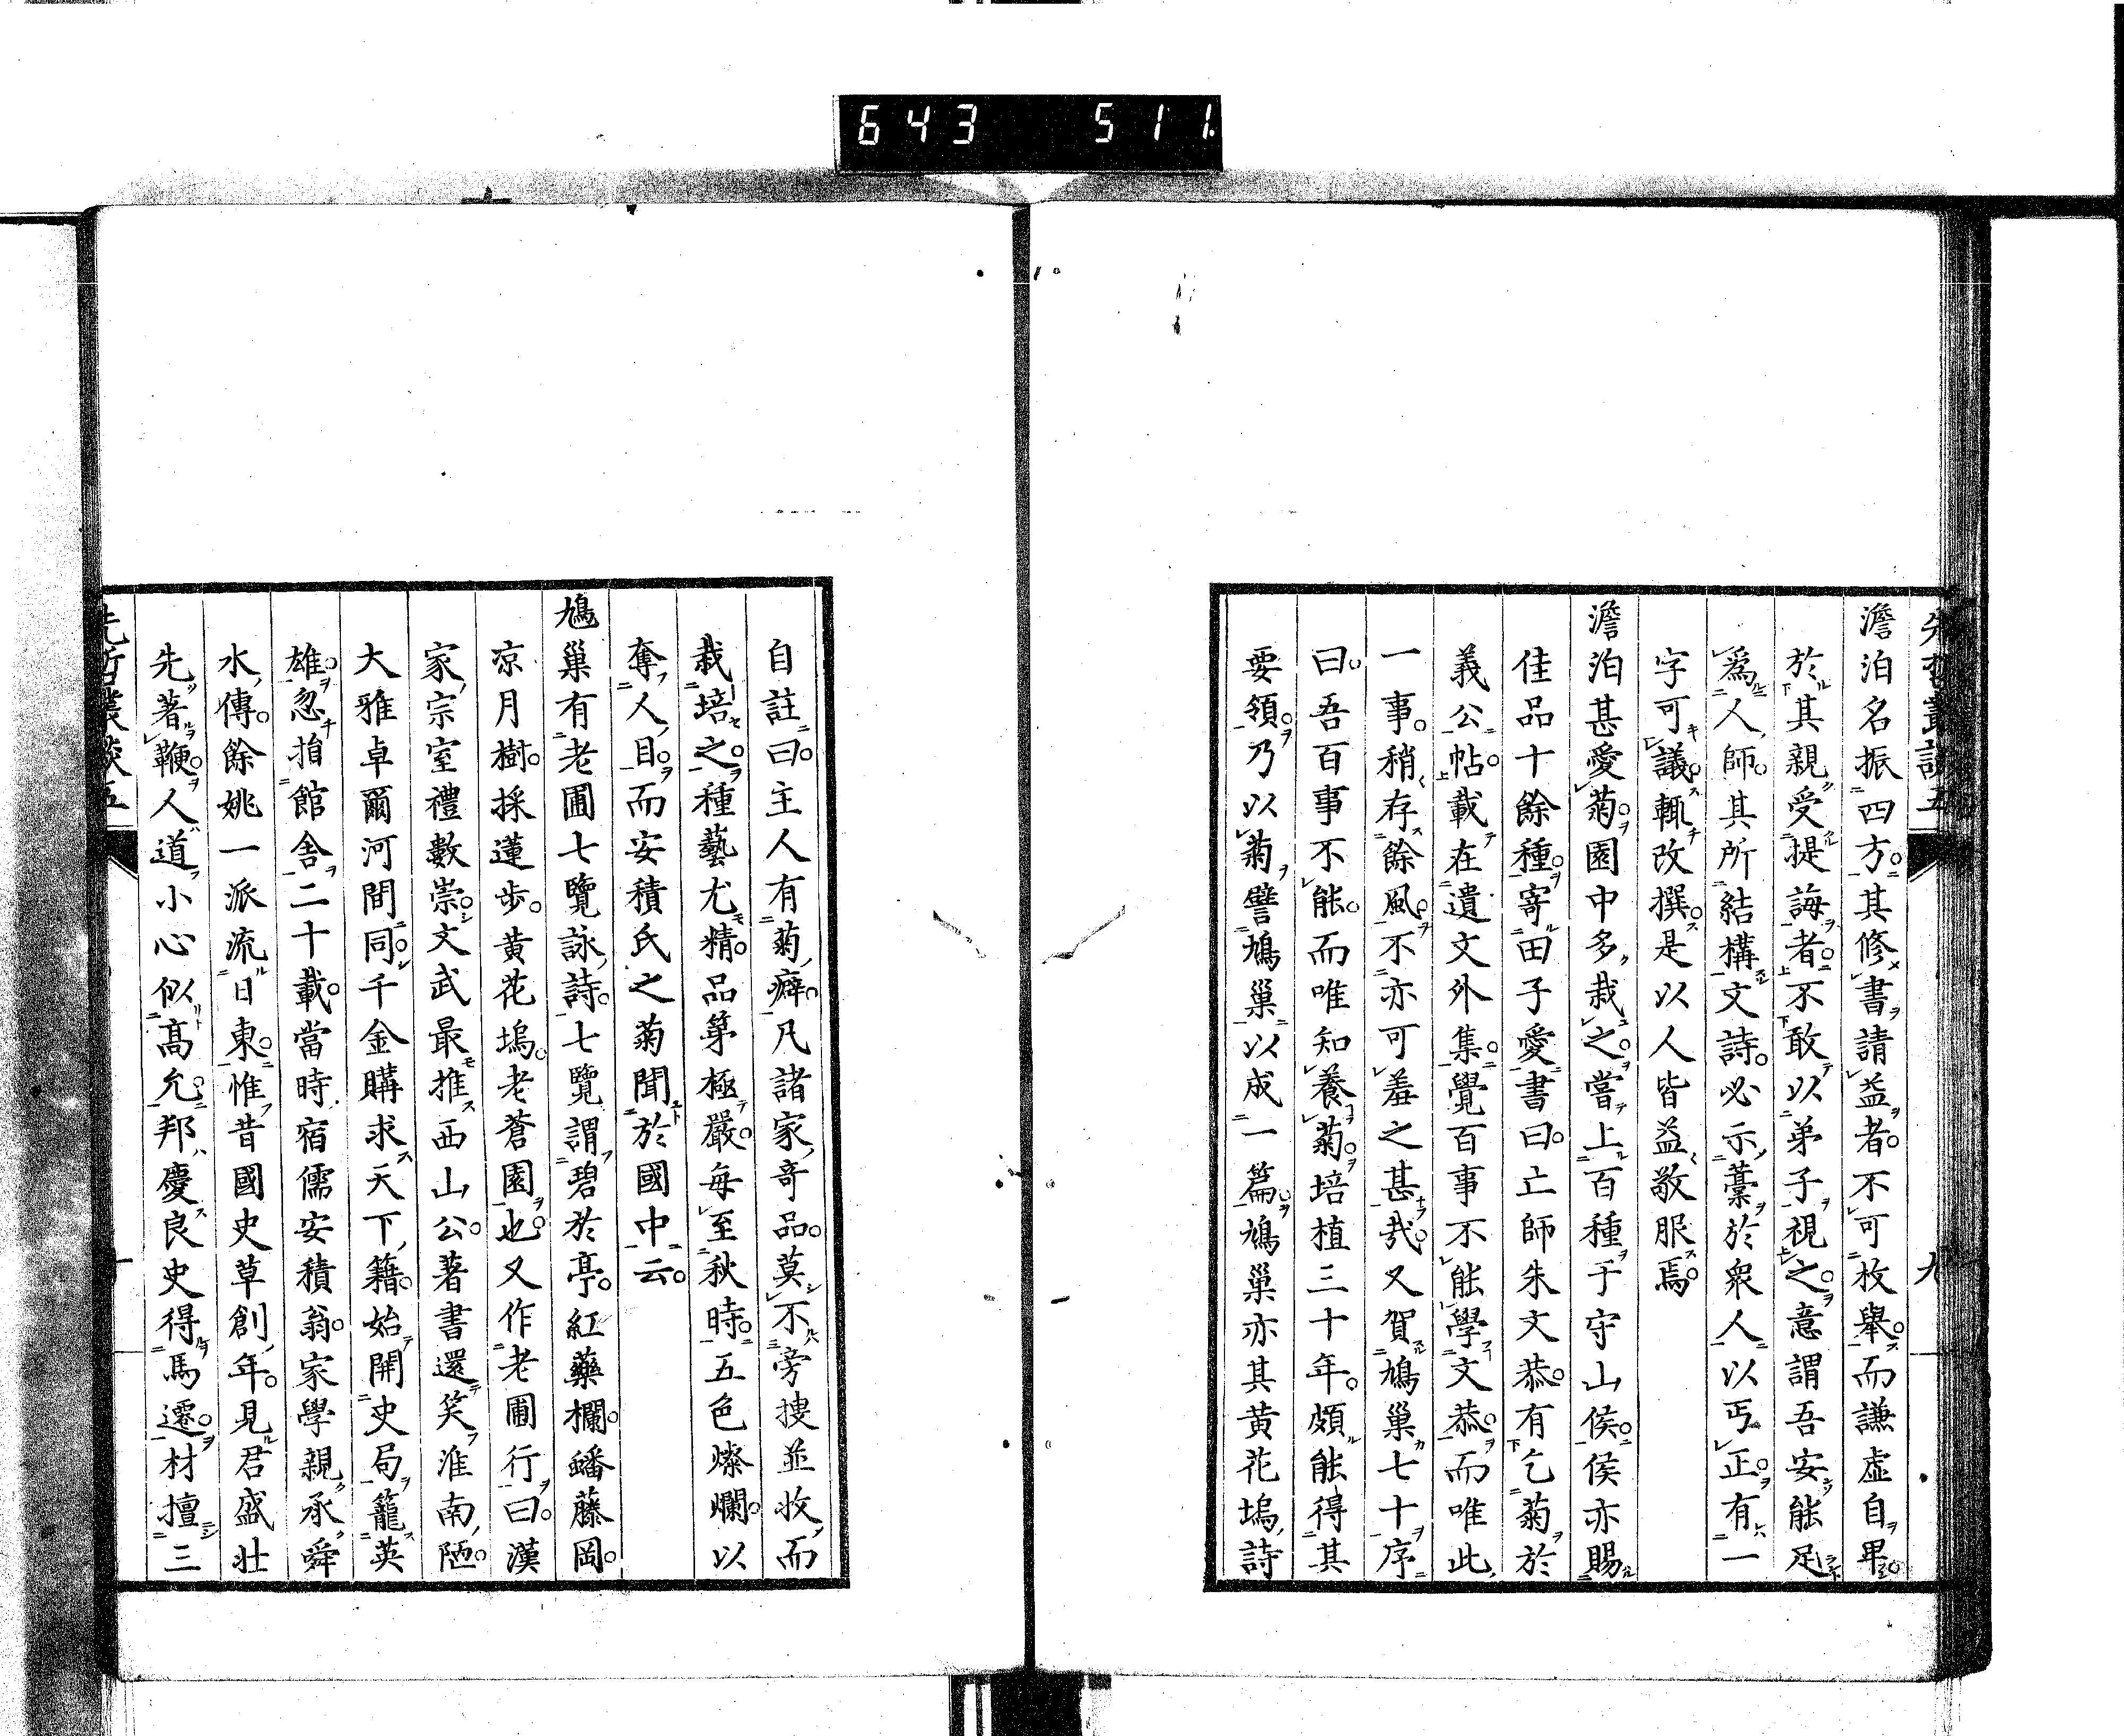 643 511
先哲叢談五
九
澹泊名振四方。其修書請益者。不可枚舉。而謙虛自畢。
於其親受提誨者。不敢以弟子視之。意謂吾安能足
爲人師。其所結構文詩。必示藁於衆人以丐正。有一
字可議。輒改撰。是以人皆益敬服焉。
澹泊甚愛菊。園中多栽之。當上百種于守山侯。侯亦賜
佳品十餘種。寄田子愛書曰。亡師朱文恭。有乞菊於
義公帖。載在遺文外集。覺百事不能學文恭。而唯此
一事。稍存餘風。不亦可羞之甚哉。又賀鳩巢七十序
曰。吾百事不能。而唯知養菊。培植三十年。頗能得其
要領。乃以菊譬鳩巢以成一篇。鳩巢亦其黄花塢詩
自註曰。主人有菊癖。凡諸家奇品。莫不旁捜並收。而
栽培之。種藝尤精。品第極嚴。毎至秋時。五色燦爛。以
奪人目。而安積氏之菊聞於國中云。
鳩巢有老圃七覽詠詩。七覽謂碧於亭。紅藥欄。蟠藤岡。
凉月樹。採蓮步。黄花塢。老蒼園也。又作老圃行曰。漢
家宗室禮數崇。文武最推西山公。著書還笑淮南陋。
大雅卓爾河間同。千金購求天下籍。始開史局籠英
雄。忽指館舎二十載。當時宿儒安積翁。家學親承舜
水傳。餘姚一派流日東。惟昔國史草創年。見君盛壯
先著鞭。人道小心似髙允。邦慶良史得馬遷。材擅三
先哲叢談五
十